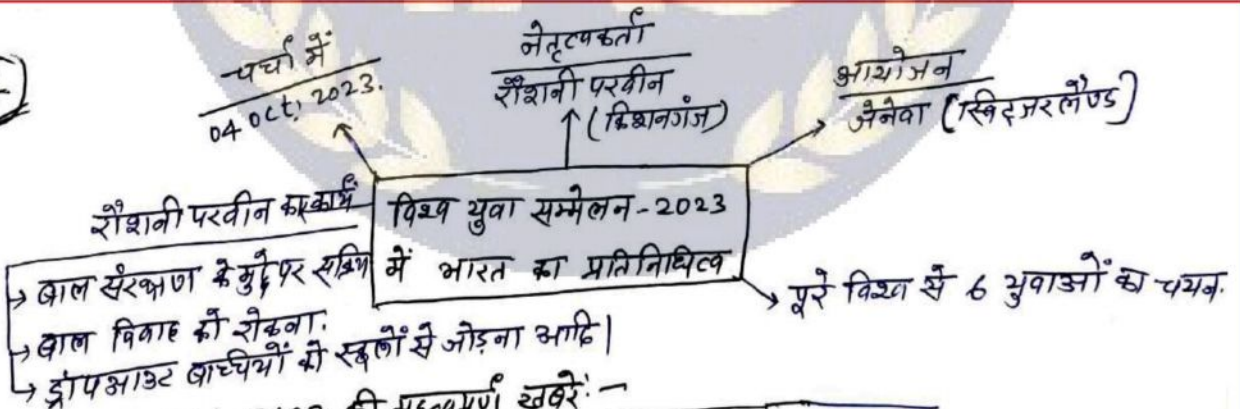 चर्चा में
04 Oct! 2023.
नेतृत्वकर्ता
रौशनी परवीन
(किशनगंज)
आयोजन
जेनेवा (स्विट्जरलैण्ड)
विश्व युवा सम्मेलन - 2023
में भारत का प्रतिनिधित्व
रौशनी परवीन का कार्य
→ बाल संरक्षण के मुद्दे पर सक्रिय
→ बाल विवाह को रोकना.
→ ड्रॉपआउट बाच्चियों को स्कूलों से जोड़ना आदि|
पूरे विश्व से 6 युवाओं का चयन.
की महत्वपूर्ण खबरें: -